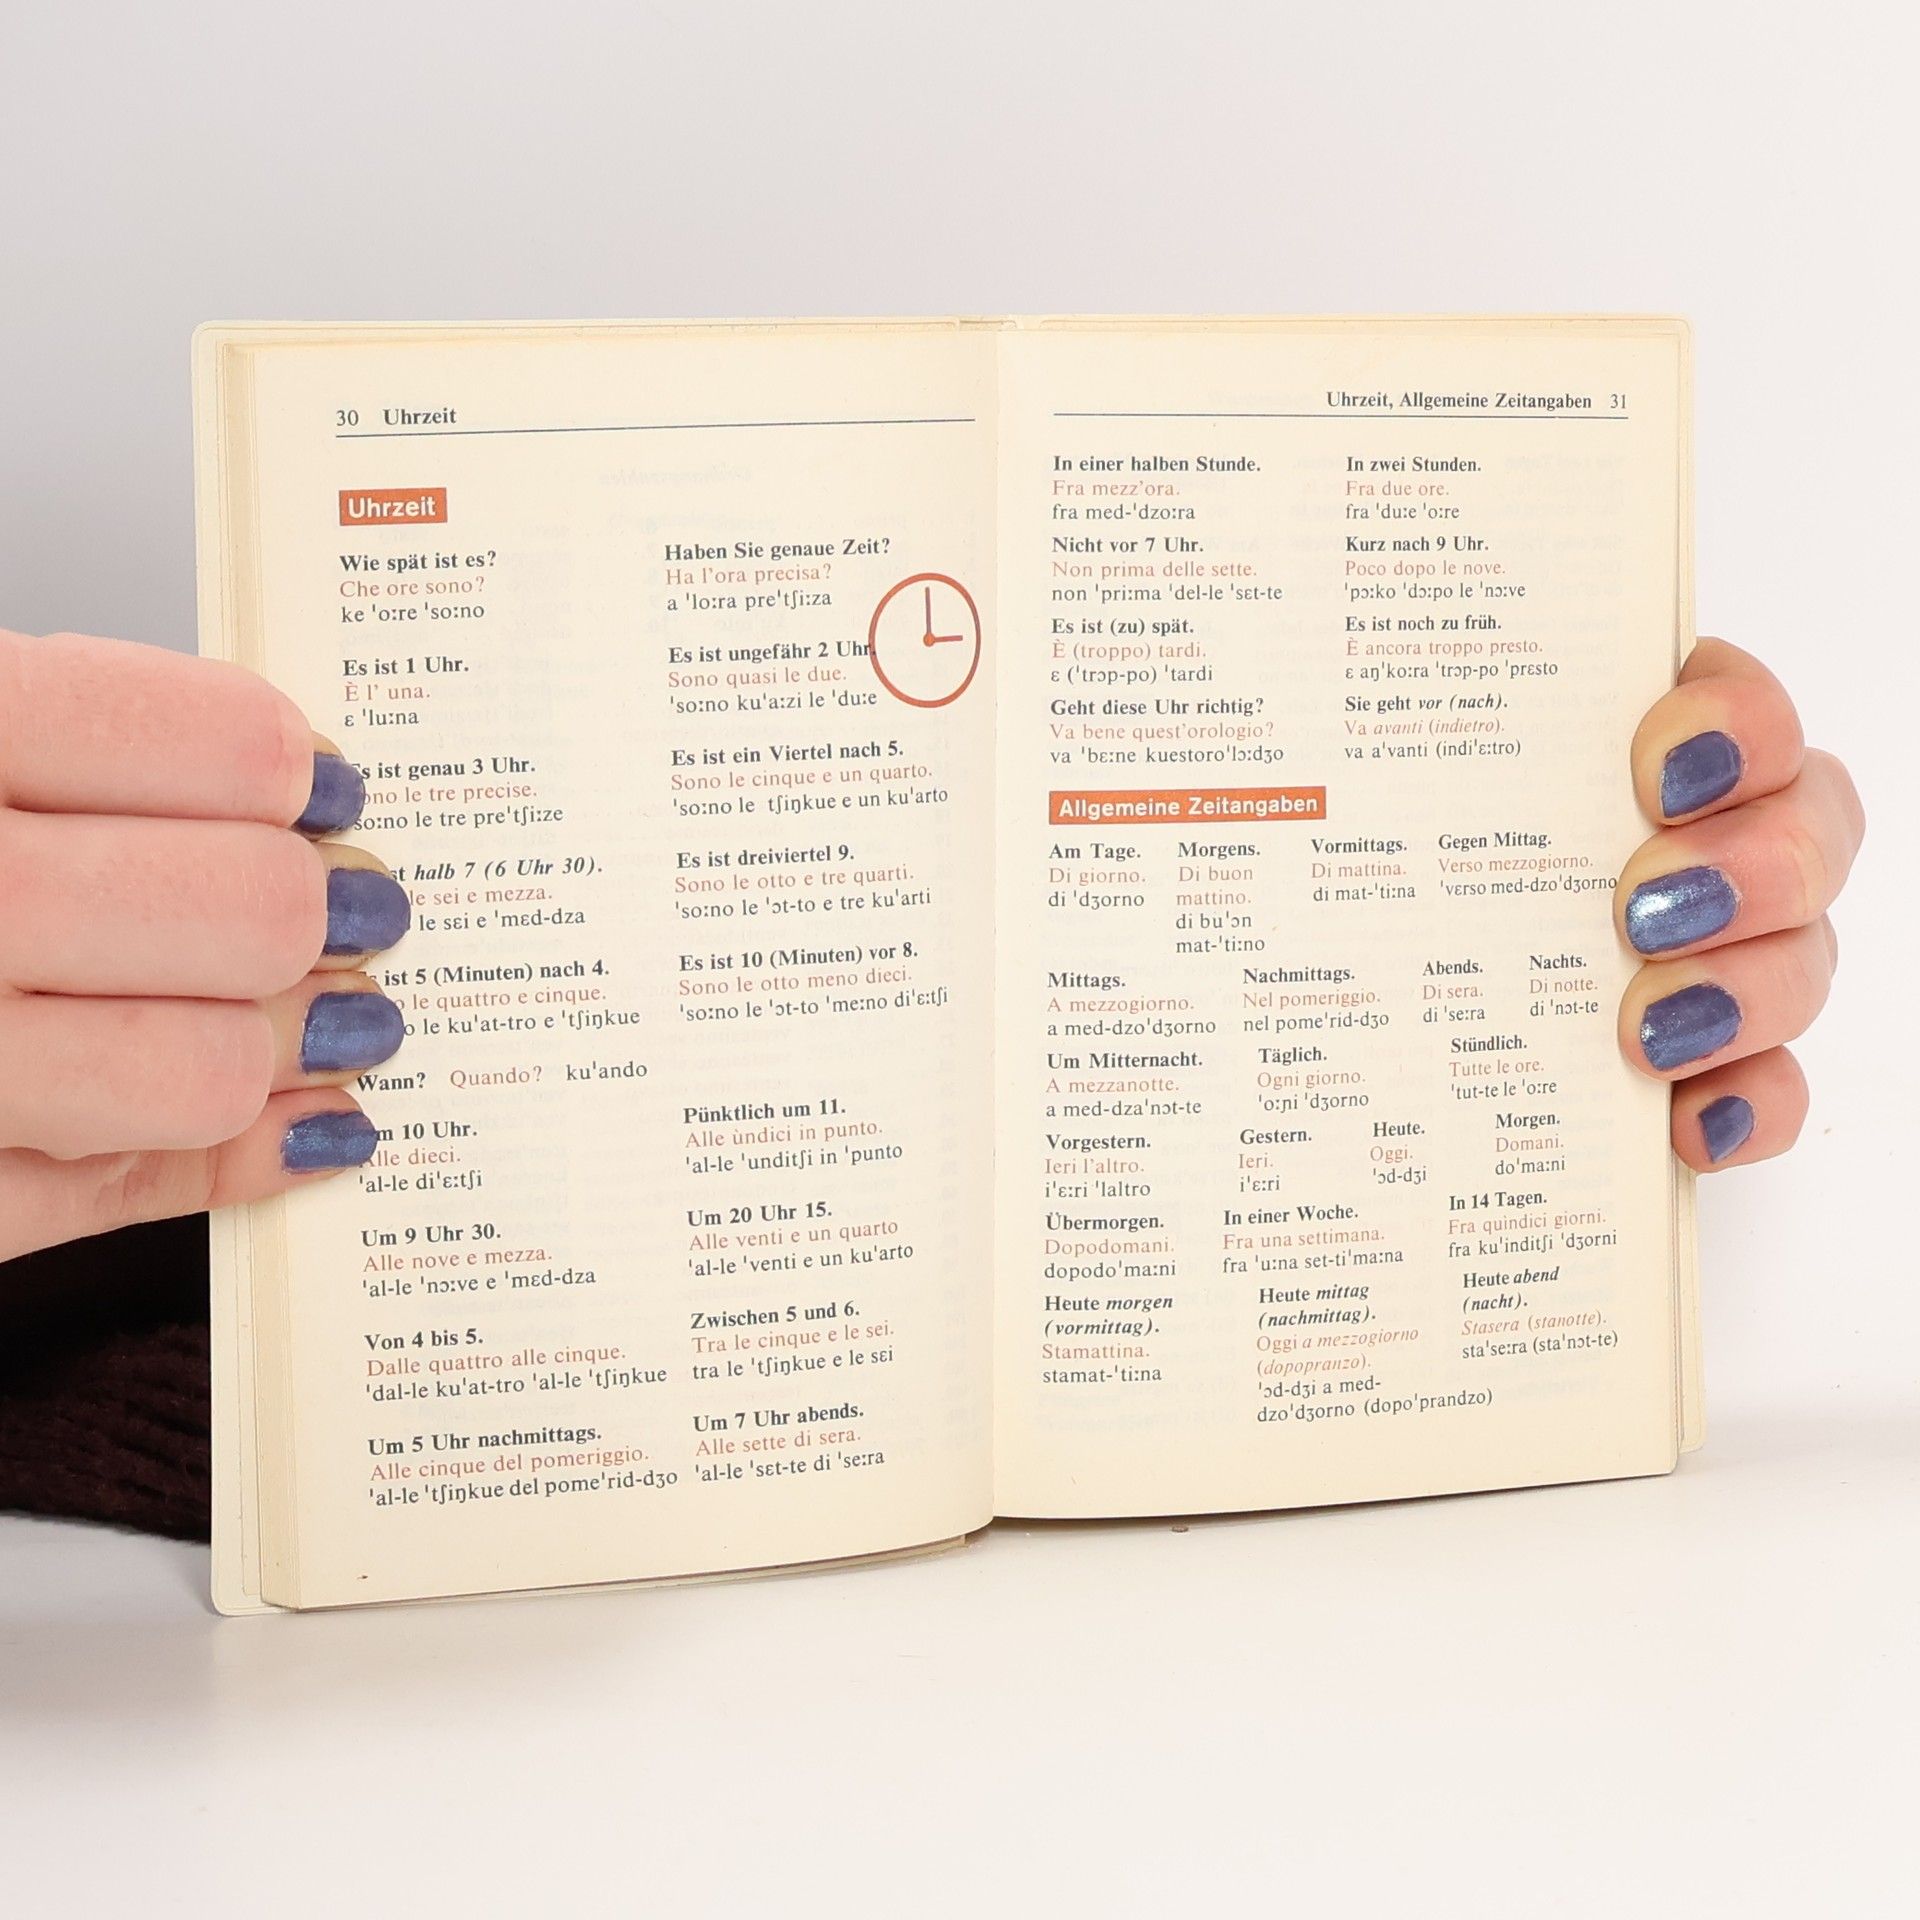 30 Uhrzeit
Uhrzeit
Wie spät ist es?
Che ore sono?
ke 'o:re 'so:no
Es ist 1 Uhr.
È l' una.
ɛ 'lu:na
s ist genau 3 Uhr.
ono le tre precise.
so:no le tre pre'tʃi:ze
st halb 7 (6 Uhr 30).
le sei e mezza.
le sɛi e 'mɛd-dza
ist 5 (Minuten) nach 4.
o le quattro e cinque.
o le ku'at-tro e 'tʃiŋkue
Wann? Quando? ku'ando
m 10 Uhr.
Alle dieci.
'al-le di'ɛ:tʃi
Um 9 Uhr 30.
Alle nove e mezza.
'al-le 'nɔ:ve e 'mɛd-dza
Von 4 bis 5.
Dalle quattro alle cinque.
'dal-le ku'at-tro 'al-le 'tʃiŋkue
Um 5 Uhr nachmittags.
Alle cinque del pomeriggio.
'al-le 'tʃiŋkue del pome'rid-dʒo
Haben Sie genaue Zeit?
Ha l'ora precisa?
a 'lo:ra pre'tʃi:za
Es ist ungefähr 2 Uhr.
Sono quasi le due.
'so:no ku'a:zi le 'du:e
Es ist ein Viertel nach 5.
Sono le cinque e un quarto.
'so:no le tʃiŋkue e un ku'arto
Es ist dreiviertel 9.
Sono le otto e tre quarti.
'so:no le 'ɔt-to e tre ku'arti
Es ist 10 (Minuten) vor 8.
Sono le otto meno dieci.
'so:no le 'ɔt-to 'me:no di'ɛ:tʃi
Pünktlich um 11.
Alle ùndici in punto.
'al-le 'unditʃi in 'punto
Um 20 Uhr 15.
Alle venti e un quarto
'al-le 'venti e un ku'arto
Zwischen 5 und 6.
Tra le cinque e le sei.
tra le 'tʃiŋkue e le sɛi
Um 7 Uhr abends.
Alle sette di sera.
'al-le 'sɛt-te di 'se:ra
Uhrzeit, Allgemeine Zeitangaben 31
In einer halben Stunde.
Fra mezz'ora.
fra med-'dzo:ra
In zwei Stunden.
Fra due ore.
fra 'du:e 'o:re
Nicht vor 7 Uhr.
Non prima delle sette.
non 'pri:ma 'del-le 'sɛt-te
Kurz nach 9 Uhr.
Poco dopo le nove.
'pɔ:ko 'dɔ:po le 'nɔ:ve
Es ist (zu) spät.
È (troppo) tardi.
ɛ ('trɔp-po) 'tardi
Es ist noch zu früh.
È ancora troppo presto.
ɛ aŋ'ko:ra 'trɔp-po 'prɛsto
Geht diese Uhr richtig?
Va bene quest'orologio?
va 'bɛ:ne kuestoro'lɔ:dʒo
Sie geht vor (nach).
Va avanti (indietro).
va a'vanti (indi'ɛ:tro)
Allgemeine Zeitangaben
Am Tage.
Di giorno.
di 'dʒorno
Morgens.
Di buon
mattino.
di bu'ɔn
mat-'ti:no
Vormittags.
Di mattina.
di mat-'ti:na
Gegen Mittag.
Verso mezzogiorno.
'vɛrso med-dzo'dʒorno
Mittags.
A mezzogiorno.
a med-dzo'dʒorno
Nachmittags.
Nel pomeriggio.
nel pome'rid-dʒo
Abends.
Di sera.
di 'se:ra
Nachts.
Di notte.
di 'nɔt-te
Um Mitternacht.
A mezzanotte.
a med-dza'nɔt-te
Täglich.
Ogni giorno.
'o:ɲi 'dʒorno
Stündlich.
Tutte le ore.
'tut-te le 'o:re
Vorgestern.
Ieri l'altro.
i'ɛ:ri 'laltro
Gestern.
Ieri.
i'ɛ:ri
Heute.
Oggi.
'ɔd-dʒi
Morgen.
Domani.
do'ma:ni
Übermorgen.
Dopodomani.
dopodo'ma:ni
In einer Woche.
Fra una settimana.
fra 'u:na set-ti'ma:na
In 14 Tagen.
Fra quìndici giorni.
fra ku'inditʃi 'dʒorni
Heute morgen
(vormittag).
Stamattina.
stamat-'ti:na
Heute mittag
(nachmittag).
Oggi a mezzogiorno
(dopopranzo).
'ɔd-dʒi a med-
dzo'dʒorno (dopo'prandzo)
Heute abend
(nacht).
Stasera (stanotte).
sta'se:ra (sta'nɔt-te)